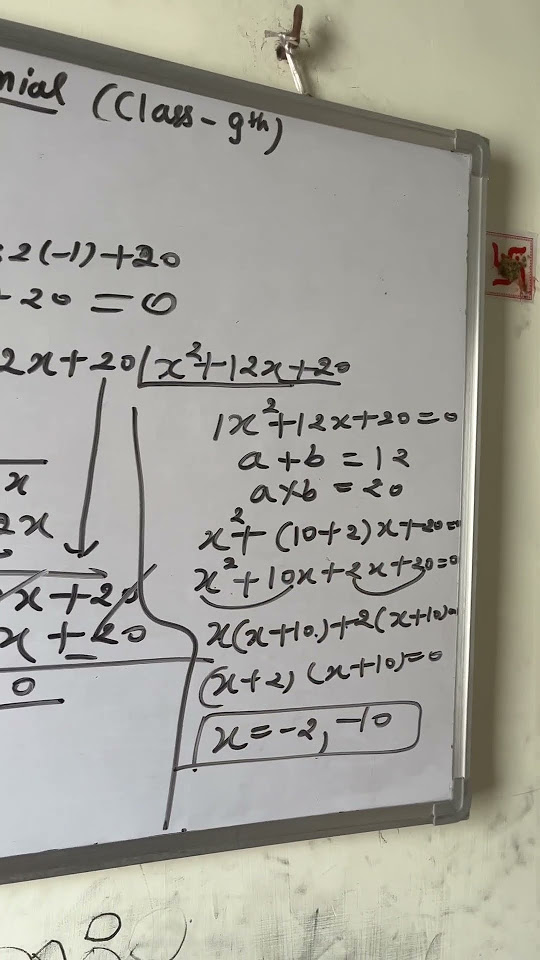 nial (Class - 9th)
2(-1) + 20
20 = 0
2x + 20 / x² + 12x + 20
1x² + 12x + 20 = 0
a + b = 12
x
a × b = 20
2x
x² + (10 + 2) x + 20 =
x² + 10x + 2x + 20 = 0
x + 20
x(x + 10) + 2(x + 10) =
x + 20
(x + 2) (x + 10) = 0
0
x = -2, -10